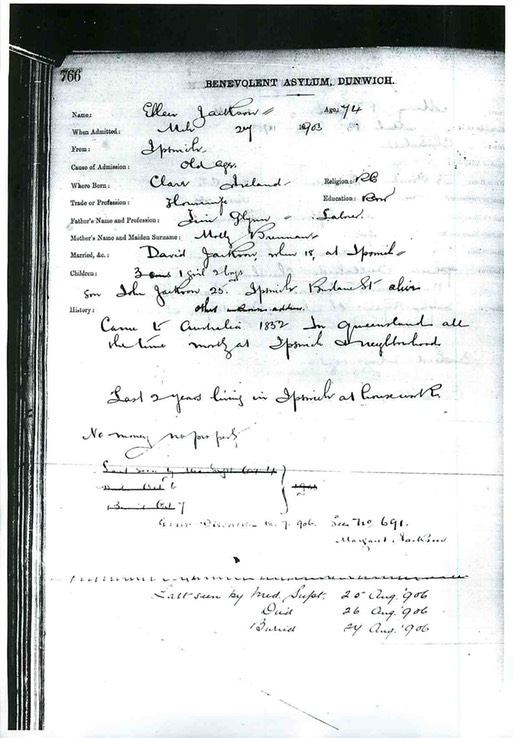 766
BENEVOLENT ASYLUM, DUNWICH.
Name: Ellen Jackson Age: 74
When Admitted: Mch 27 1903
From: Ipswich
Cause of Admission: Old age.
Where Born: Clare Ireland Religion: RC
Trade or Profession: Housewife Education: Row
Father's Name and Profession: Jim Glynn - Labrer
Mother's Name and Maiden Surname: Molly Brennan
Married, &c.: David Jackson, when 18, at Ipswich
Children: 3 1 girl 2 boys
Son John Jackson 25 Ipswich Brisbane St alive
History: other unknown address.
Came to Australia 1852 In Queensland all
the time mostly at Ipswich & neighborhood
Last 2 years living in Ipswich at housework.
No money no property
Last seen by Med Supt Oct 4
Died Oct 6
Buried Oct 7
Error Discovered 7. 906. See No 691.
Margaret Jackson
Last seen by Med. Supt. 25 Aug '906
Died 26 Aug '906
Buried 27 Aug '906